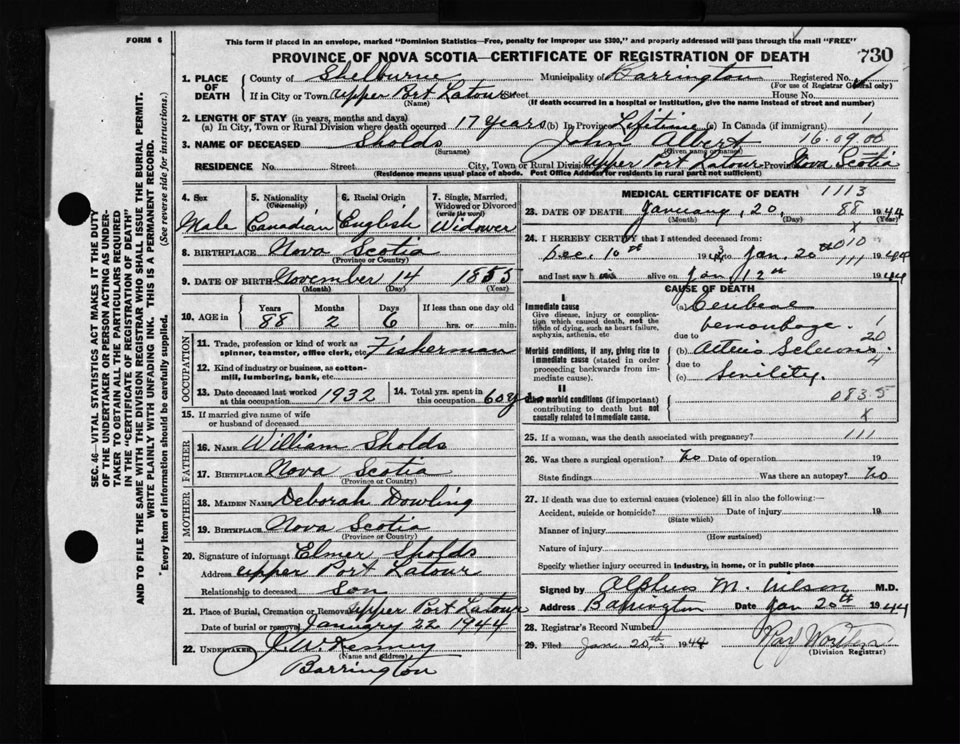 FORM 6
This form if placed in an envelope, marked "Dominion Statistics—Free, penalty for improper use $300," and properly addressed will pass through the mail "FREE"
PROVINCE OF NOVA SCOTIA—CERTIFICATE OF REGISTRATION OF DEATH 730
SEC. 46—VITAL STATISTICS ACT MAKES IT THE DUTY
OF THE UNDERTAKER OR PERSON ACTING AS UNDER-
TAKER TO OBTAIN ALL THE PARTICULARS REQUIRED
IN THE "CERTIFICATE OF REGISTRATION OF DEATH"
AND TO FILE THE SAME WITH THE DIVISION REGISTRAR WHO SHALL ISSUE THE BURIAL PERMIT.
WRITE PLAINLY WITH UNFADING INK. THIS IS A PERMANENT RECORD.
Every item of information should be carefully supplied. (See reverse side for instructions.)
1. PLACE OF DEATH County of Shelburne Municipality of Barrington Registered No.
(For use of Registrar General only)
If in City or Town Upper Port Latour Street House No.
(Name) (If death occurred in a hospital or institution, give the name instead of street and number)
2. LENGTH OF STAY (in years, months and days)
(a) In City, Town or Rural Division where death occurred 17 years (b) In Province Lifetime (c) In Canada (if immigrant) 1
3. NAME OF DECEASED Sholds John Albert 16.09.00
(Surname) (Given name or names)
RESIDENCE No. Street City, Town or Rural Division Upper Port Latour Province Nova Scotia
(Residence means usual place of abode. Post Office Address for residents in rural parts not sufficient)
4. Sex 5. Nationality (Citizenship) 6. Racial Origin 7. Single, Married, Widowed or Divorced (write the word)
Male Canadian English Widower
8. BIRTHPLACE Nova Scotia
(Province or Country)
9. DATE OF BIRTH November 14 1855
(Month) (Day) (Year)
10. AGE in Years Months Days If less than one day old
88 2 6 hrs. or min.
OCCUPATION
11. Trade, profession or kind of work as spinner, teamster, office clerk, etc. Fisherman
12. Kind of industry or business, as cotton-mill, lumbering, bank, etc.
13. Date deceased last worked at this occupation 1932 14. Total yrs. spent in this occupation 60 yr
15. If married give name of wife or husband of deceased
FATHER
16. NAME William Sholds
17. BIRTHPLACE Nova Scotia
(Province or Country)
MOTHER
18. MAIDEN NAME Deborah Dowling
19. BIRTHPLACE Nova Scotia
(Province or Country)
20. Signature of informant Elmer Sholds
Address Upper Port Latour
Relationship to deceased Son
21. Place of Burial, Cremation or Removal Upper Port Latour
Date of burial or removal January 22 1944
22. UNDERTAKER Kenney
(Name and address)
Barrington
MEDICAL CERTIFICATE OF DEATH 1113
23. DATE OF DEATH January, 20, 88 1944
(Month) (Day) X
24. I HEREBY CERTIFY that I attended deceased from: 010
Dec. 10th 1943 to Jan 20th 111 1944
and last saw him alive on Jan 12th 1944
CAUSE OF DEATH
I
Immediate cause
Give disease, injury or complication which caused death, not the mode of dying, such as heart failure, asphyxia, asthenia, etc
(a) Cerebral
hemorrhage. 1
due to 20
Morbid conditions, if any, giving rise to immediate cause (stated in order proceeding backwards from immediate cause).
(b) Arterio Scleros. 4
due to
(c) Senility.
II
Other morbid conditions (if important) contributing to death but not causally related to immediate cause. 083.5
X
25. If a woman, was the death associated with pregnancy? 111
26. Was there a surgical operation? No Date of operation 19
State findings Was there an autopsy? No
27. If death was due to external causes (violence) fill in also the following:—
Accident, suicide or homicide? Date of injury 19
(State which)
Manner of injury
(How sustained)
Nature of injury
Specify whether injury occurred in industry, in home, or in public place
Signed by Alphus M. Wilson M.D.
Address Barrington Date Jan 20th 1944
28. Registrar's Record Number
29. Filed Jan. 20th, 1944
(Division Registrar)